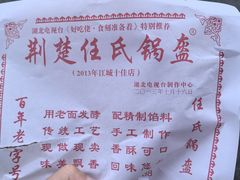 湖北电视台《好吃佬·食刻准备着》特别推荐
荆楚任氏锅盔
(2013年江城十佳店)
湖北电视台制作中心
二〇一三年七月十六日
百年老字号
用老面发酵
传统工艺
现做现烤
味美飘香
配精制馅料
手工制作
香酥可口
回味
任氏锅盔